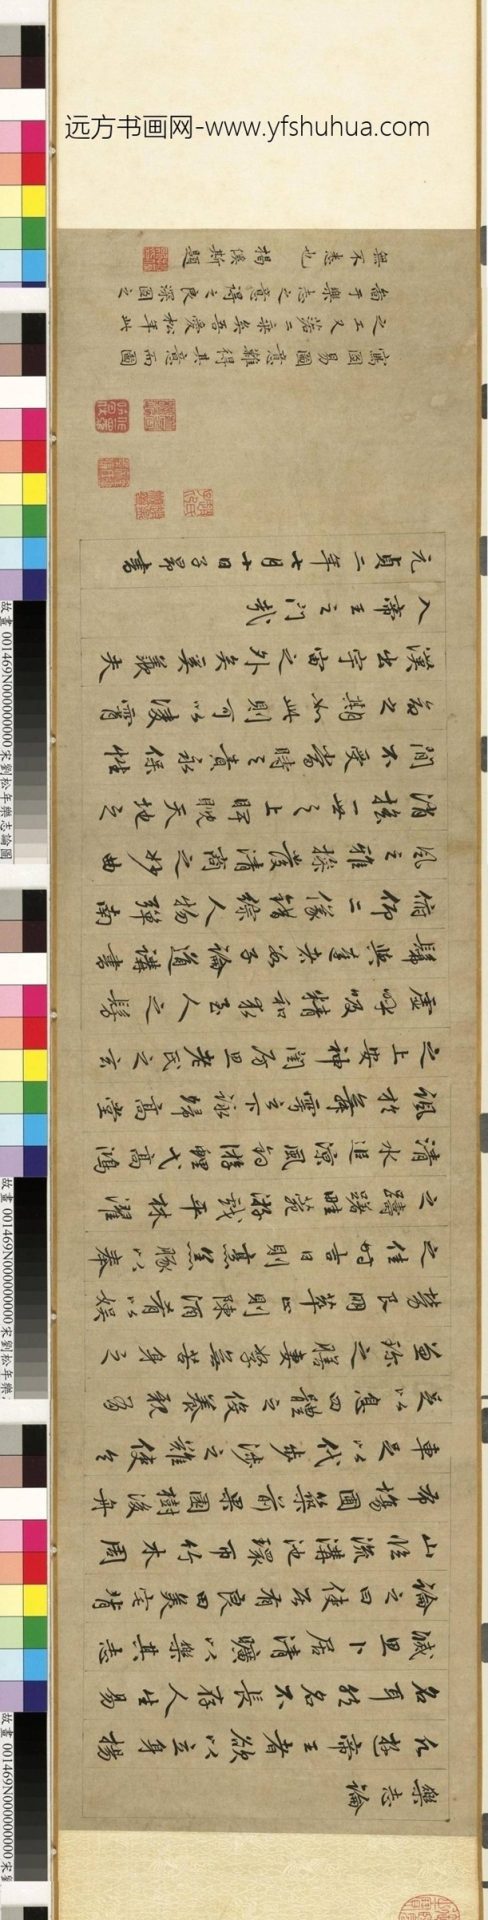 远方书画网-www.yfshuhua.com
樂志論
凡遊帝王者欲以立身揚
名耳然名不長存人生易
滅且卜居清曠以樂其志
論之曰使居有良田美宅背
山臨流溝池環帀竹木周
布場圃築前果園樹後舟
車足以代步涉之難使令
足以息四體之役養親有
兼珎之膳妻孥無苦身之
勞良朋萃止則陳酒肴以娛
之佳時吉日則烹羔豚以奉
之躊躇畦苑游戲平林濯
清水追涼風釣游鯉弋高鴻
諷於舞雩之下詠歸高堂
之上安神閨房思老氏之玄
虛呼吸精和求至人之髣
髴與達者數子論道講書
俯仰二儀錯綜人物彈南
風之雅操發清商之妙曲
消搖一世之上睥睨天地之
間不受當時之責永保性
命之期如此則可以淩霄
漢出宇宙之外矣豈羨夫
入帝王之門哉
元貞二年七月十日子昂書
寫圖易圖意難得其意而圖
之工又落二乘矣吾愛松年此
樂志之意得之良深圖之
無不悉也 揭傒斯題
故畫 001469N000000000 宋劉松年樂志論圖
故畫 001469N000000000 宋劉松年樂
故畫 001469N000000000 宋